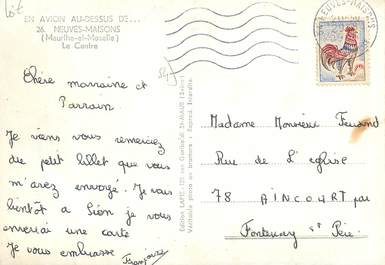 Lot
EN AVION AU-DESSUS DE...
26. NEUVES-MAISONS
(Meurthe-et-Moselle)
Le Centre
54
NEUVES-MAISONS
Chère marraine et
Parrain
Je viens vous remercier
du petit billet que vous
m'avez envoyé. Je vais
bientôt à Sion je vous
enverrai une carte
Je vous embrasse
Madame Monsieur
Rue de L'eglise
78 AINCOURT par
Fontenay St Père